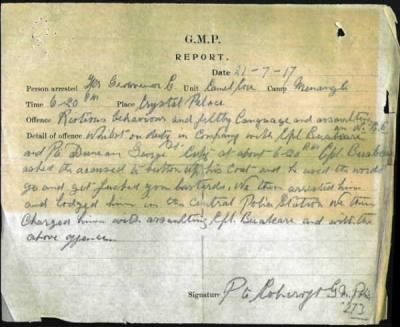 G.M.P.
REPORT.
Date 21-7-17
Person arrested Grosvenor C. Unit Camp Menangle
Time 6-20 PM Place Crystal Palace
Offence Riotous behaviour and filthy language and assaulting an N.C.O.
Detail of offence Whilst on duty in Company with Cpl Buskare
and Pte Duncan George St. at about 6-20 PM Cpl. Buskare
asked the accused to button up his Coat and he used the words
go and get fucked you bastards. We then arrested him
and lodged him in the Central Police Station We then
Charged him with assaulting Cpl. Buskare and with the
above offences
Signature Pte G.M. Police
273